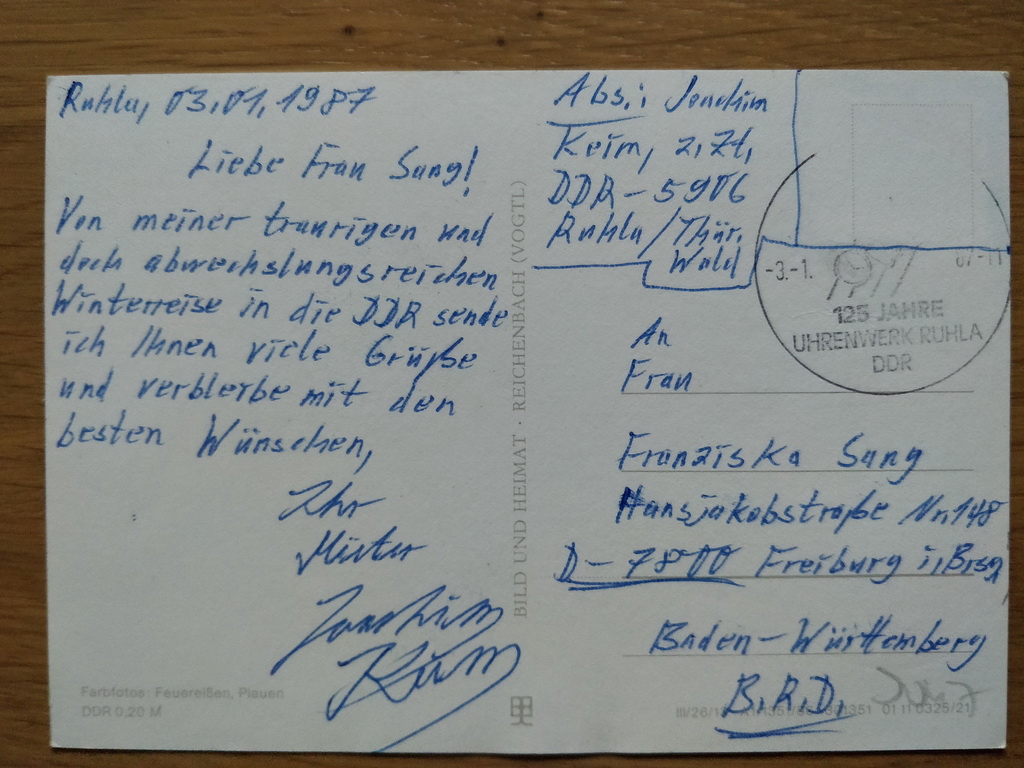 Ruhla, 03.01.1987
Liebe Frau Sang!
Von meiner traurigen und
doch abwechslungsreichen
Winterreise in die DDR sende
ich Ihnen viele Grüße
und verbleibe mit den
besten Wünschen,
Ihr
Mieter
Joachim
Keim
Farbfotos: Feuereißen, Plauen
DDR 0,20 M
BILD UND HEIMAT · REICHENBACH (VOGTL)
Abs.: Joachim
Keim, z. Zt.
DDR-5906
Ruhla/Thür.
Wald
-3.-1.
07-11
125 JAHRE
UHRENWERK RUHLA
DDR
An
Frau
Franziska Sang
Hansjakobstraße Nr. 148
D-7800 Freiburg i. Brsg.
Baden-Württemberg
B.R.D.
01 11 0325/21